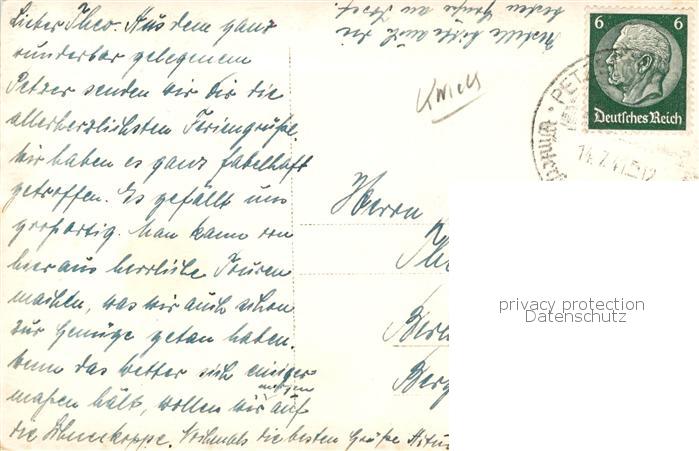 Lieber Theo. Aus dem ganz
wunderbar gelegenem
Petzer senden wir dir die
allerherzlichsten Feriengrüße.
Wir haben es ganz fabelhaft
getroffen. Es gefällt uns
großartig. Man kann von
hier aus herrliche Touren
machen, was wir auch schon
zur Genüge getan haben.
Wenn das Wetter sich einiger-
maßen hält, wollen wir morgen auf
die Schneekoppe. Nochmals die besten Grüße
bitte auch die
besten Grüße an
6 6
Deutsches Reich
PETZER
14.7.41.12
Herrn
Berl
Berg
privacy protection
Datenschutz